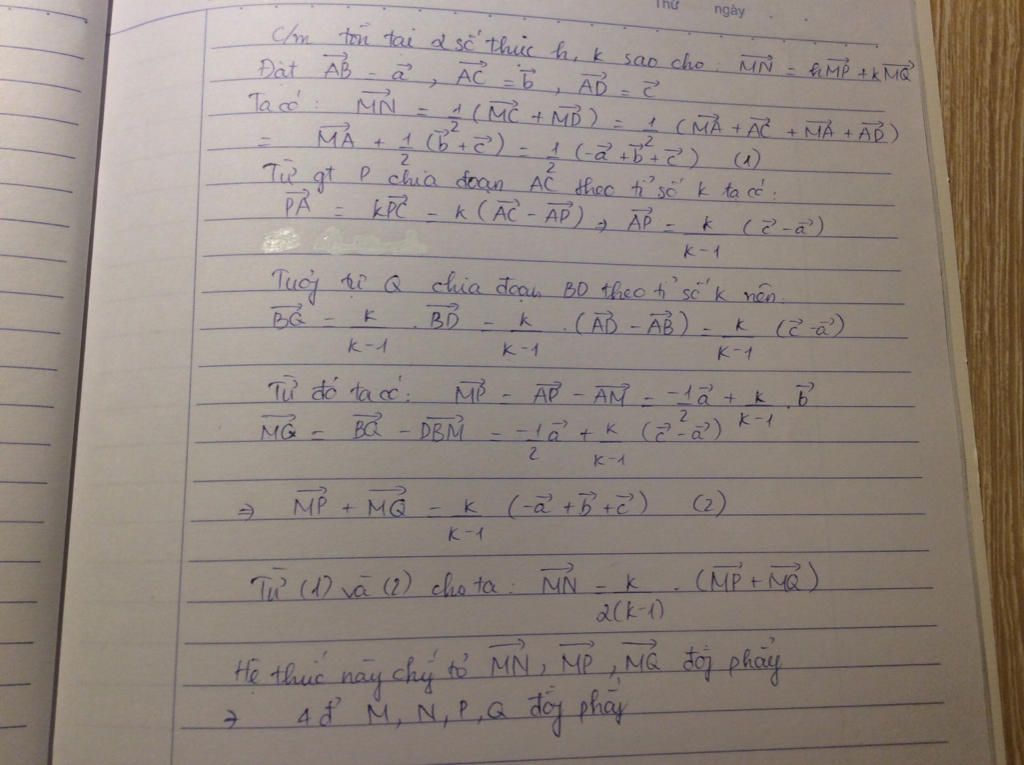 Thứ ngày
C/m tồn tại 2 số thực h, k sao cho: MN→ = hMP→ + kMQ→
Đặt AB→ = a→, AC→ = b→, AD→ = c→
Ta có: MN→ = 1/2 (MC→ + MD→) = 1/2 (MA→ + AC→ + MA→ + AD→)
= MA→ + 1/2 (b→ + c→) = 1/2 (-a→ + b→ + c→) (1)
Từ gt P chia đoạn AC theo tỉ số k ta có:
PA→ = kPC→ = k(AC→ - AP→) → AP→ = k/(k-1) (c→ - a→)
Tương tự Q chia đoạn BD theo tỉ số k nên.
BQ→ = k/(k-1) . BD→ = k/(k-1) . (AD→ - AB→) = k/(k-1) (c→ - a→)
Từ đó ta có: MP→ = AP→ - AM→ = -1/2 a→ + k/(k-1) . b→
MQ→ = BQ→ - DBM→ = -1/2 a→ + k/(k-1) (c→ - a→)
⇒ MP→ + MQ→ = k/(k-1) (-a→ + b→ + c→) (2)
Từ (1) và (2) cho ta: MN→ = k/2(k-1) . (MP→ + MQ→)
Hệ thức này chứng tỏ MN→, MP→, MQ→ đồng phẳng
⇒ 4 đ M, N, P, Q đồng phẳng